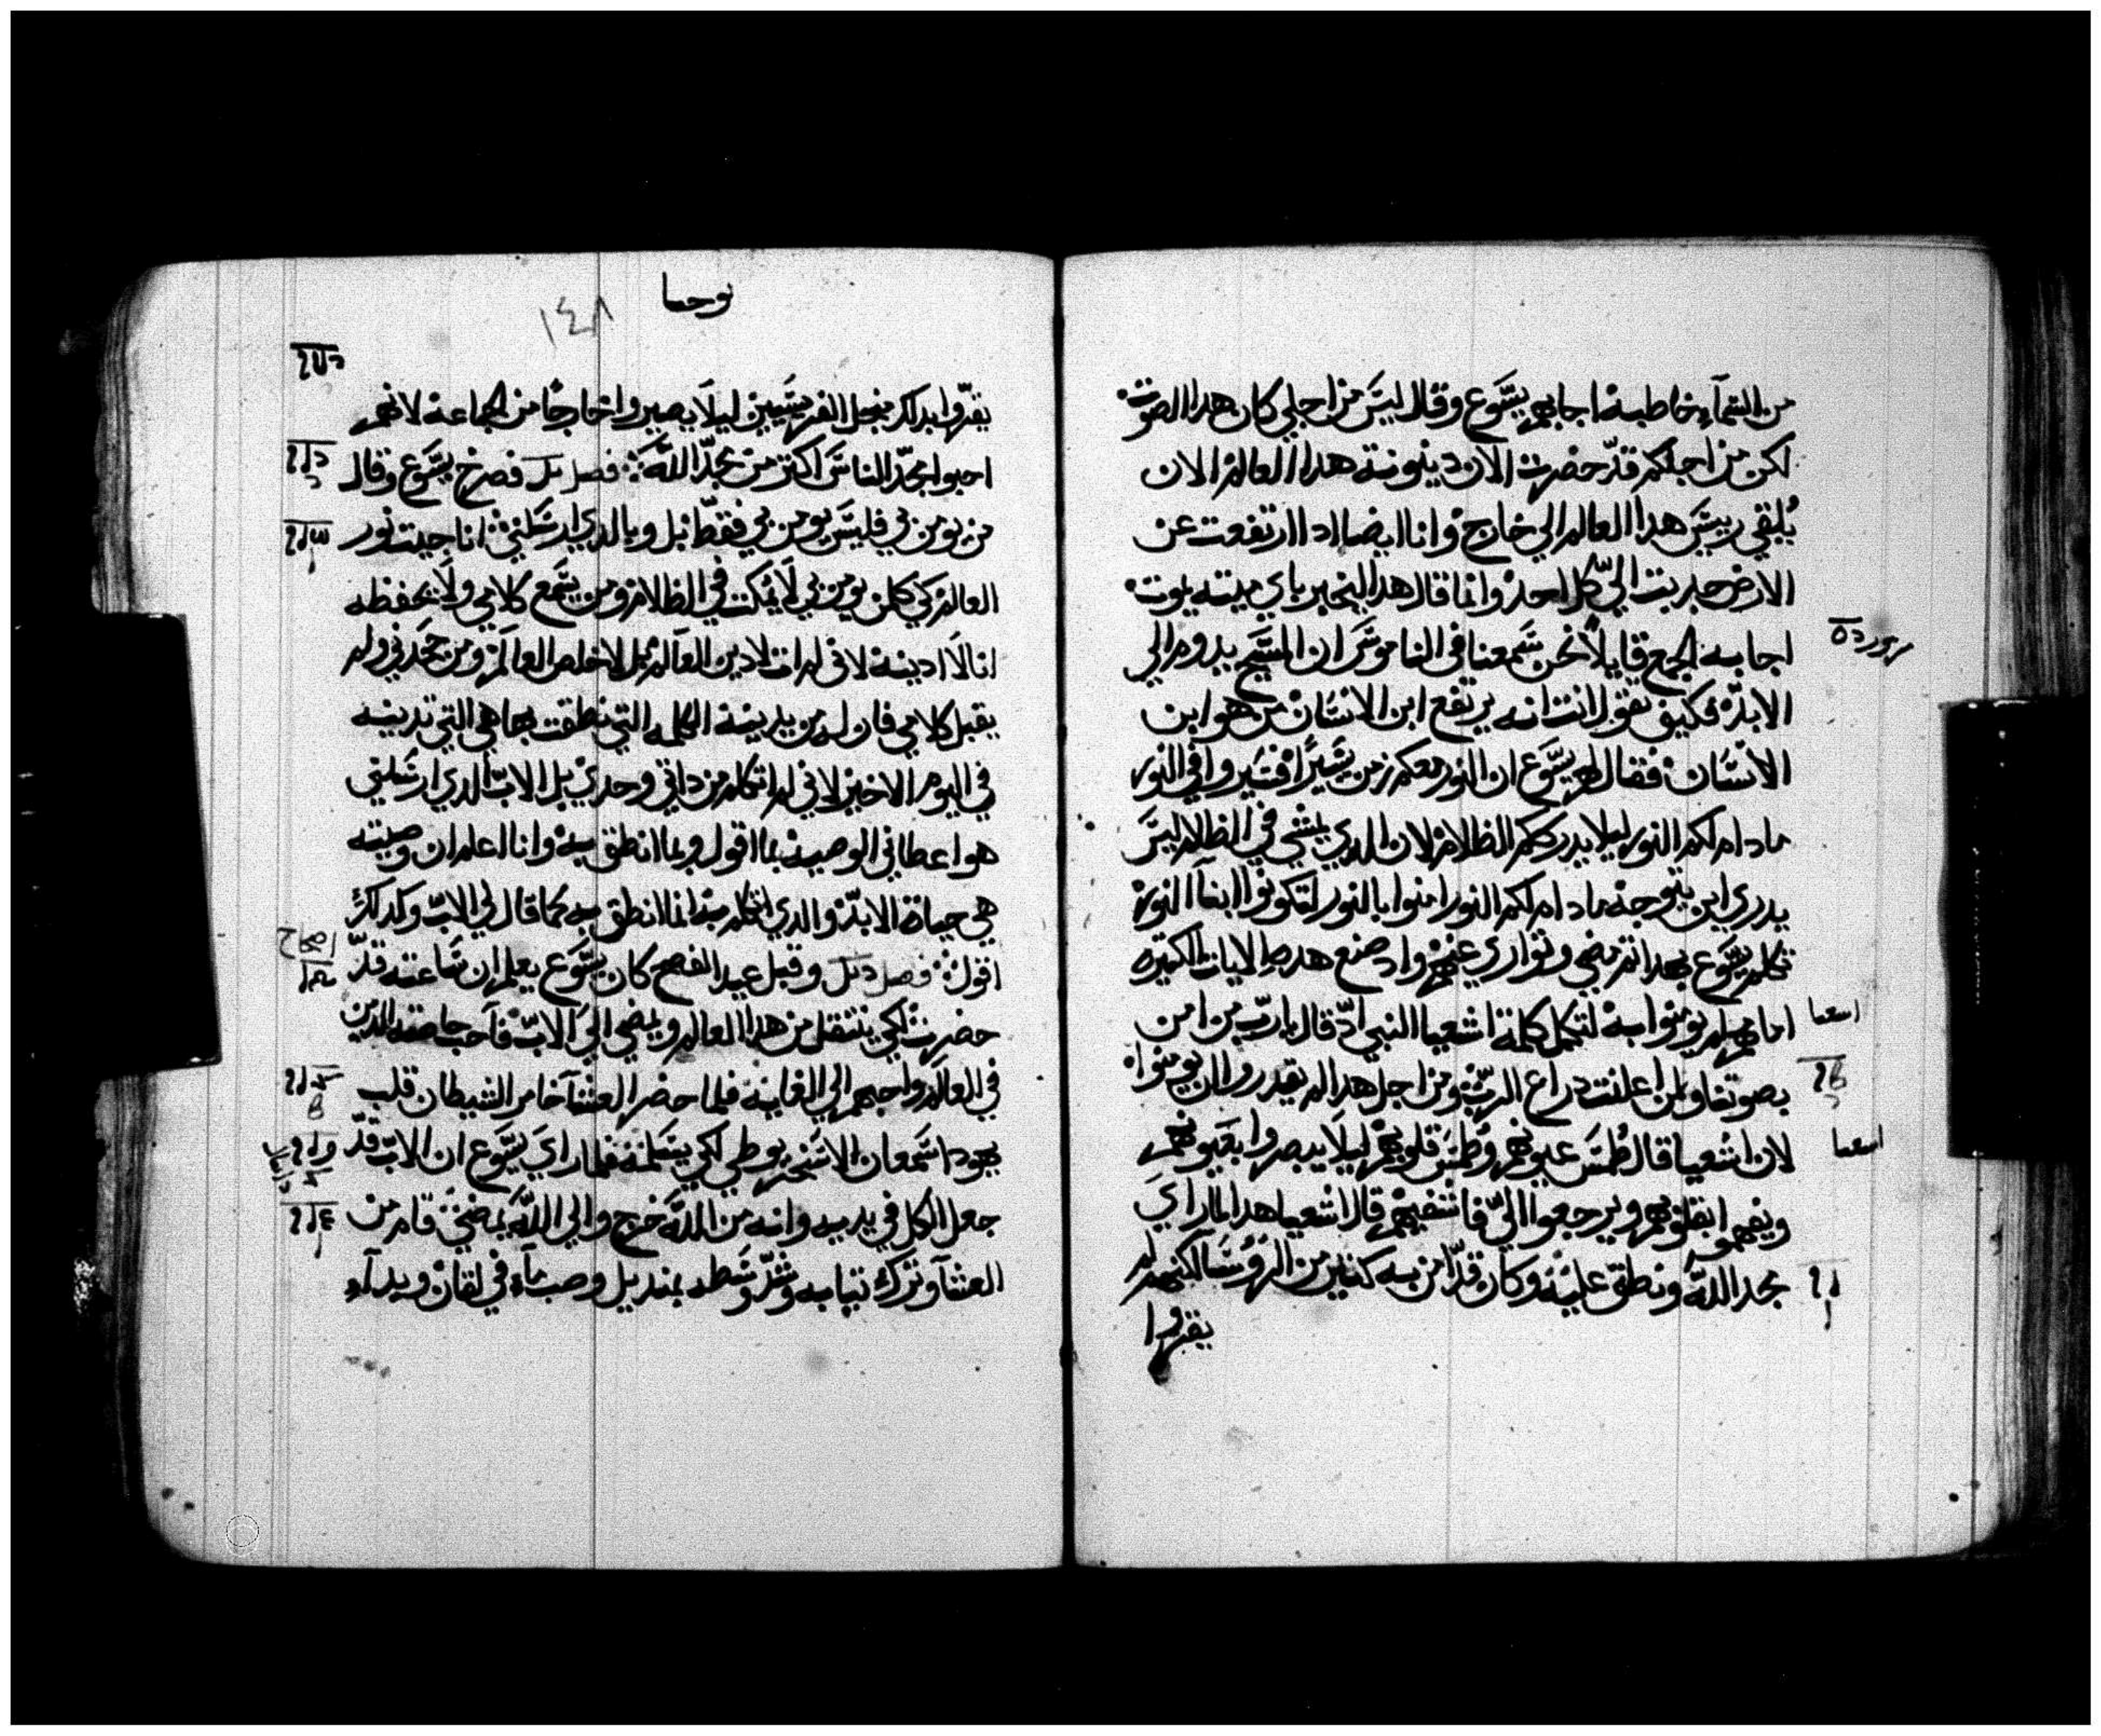 من السماء خاطبه اجابهم يسوع وقال ليس من اجلي كان هدا الصوت
لكن من اجلكم قد حضرت الان دينونة هدا العالم الان
يُلقي رييس هدا العالم الي خارج وانا ايضا ادا ارتفعت عن
الارض جدبت الي كل احد وانما قال هدا ليخبر باي ميته يموت
اجابه الجمع قايلا نحن سمعنا في الناموس ان المسيح يدوم الي
الابد فكيف تقول انت انه يرتفع ابن الانسان من هو ابن
الانسان فقال لهم يسوع ان النور معكم زمن يسيرا فسيروا في النور
مادام لكم النور ليلا يدرككم الظلام لان الدي يمشي في الظلام ليس
يدري اين يتوجه مادام لكم النور امنوا بالنور لتكونوا ابنا النور
تكلم يسوع بهدا تم مضي وتواري عنهم واد صنع هده الايات الكتيره
امامهم لم يومنوا به لتكمل كلمة اشعيا النبي اد قال يا رب من امن
بصوتنا ولمن اعلنت دراع الرب ومن اجل هدا لم يقدروا ان يومنوا
لان اشعيا قال طُمس عيونهم وطُمس قلوبهم ليلا يبصروا بعيونهم
ويفهموا بقلوبهم ويرجعوا الي فاشفيهم قال اشعيا هدا لما راي
مجد الله ونطق عليه وكان قد امن به كتير من الروسا لكنهم لم
يقروا
مزمور
اسعيا
اسعيا
يوحنا
١٤٨
يقروا بدلك من اجل الفريسيين ليلا يصيروا خارجا من الجماعه لانهم
احبوا مجد الناس اكتر من مجد الله فصل فصرخ يسوع وقال
من يومن بي فليس يومن بي فقط بل وبالدي ارسلني انا جيت نور
العالم كي كلمن يومن بي لا يمكت في الظلام ومن يسمع كلامي ولا يحفظه
انا لا ادينه لاني لم ات لادين العالم بل لاخلص العالم ومن جحدني ولم
يقبل كلامي فان له من يدينه الكلمه التي نطقت بها هي التي تدينه
في اليوم الاخير لاني لم اتكلم من داتي وحدي بل الاب الدي ارسلني
هو اعطاني الوصيه بما اقول وبما انطق به وانا اعلم ان وصيته
هي حياة الابد والدي اتكلم به انما انطق به كما قال لي الاب وكدلك
اقول فصل وقبل عيد الفصح كان يسوع يعلم ان ساعته قد
حضرت لكي ينتقل من هدا العالم ويمضي الي الاب فاحب خاصته الدين
في العالم واحبهم الي الغايه فلما حضر العشا خامر الشيطان قلب
يهودا سمعان الاسخريوطي لكي يسلمه فلما راي يسوع ان الاب قد
جعل الكل في يديه وانه من الله خرج والي الله يمضي قام من
العشا وترك تيابه وشد وسطه بمنديل وصب ماء في لقان وبداء
اصحاح